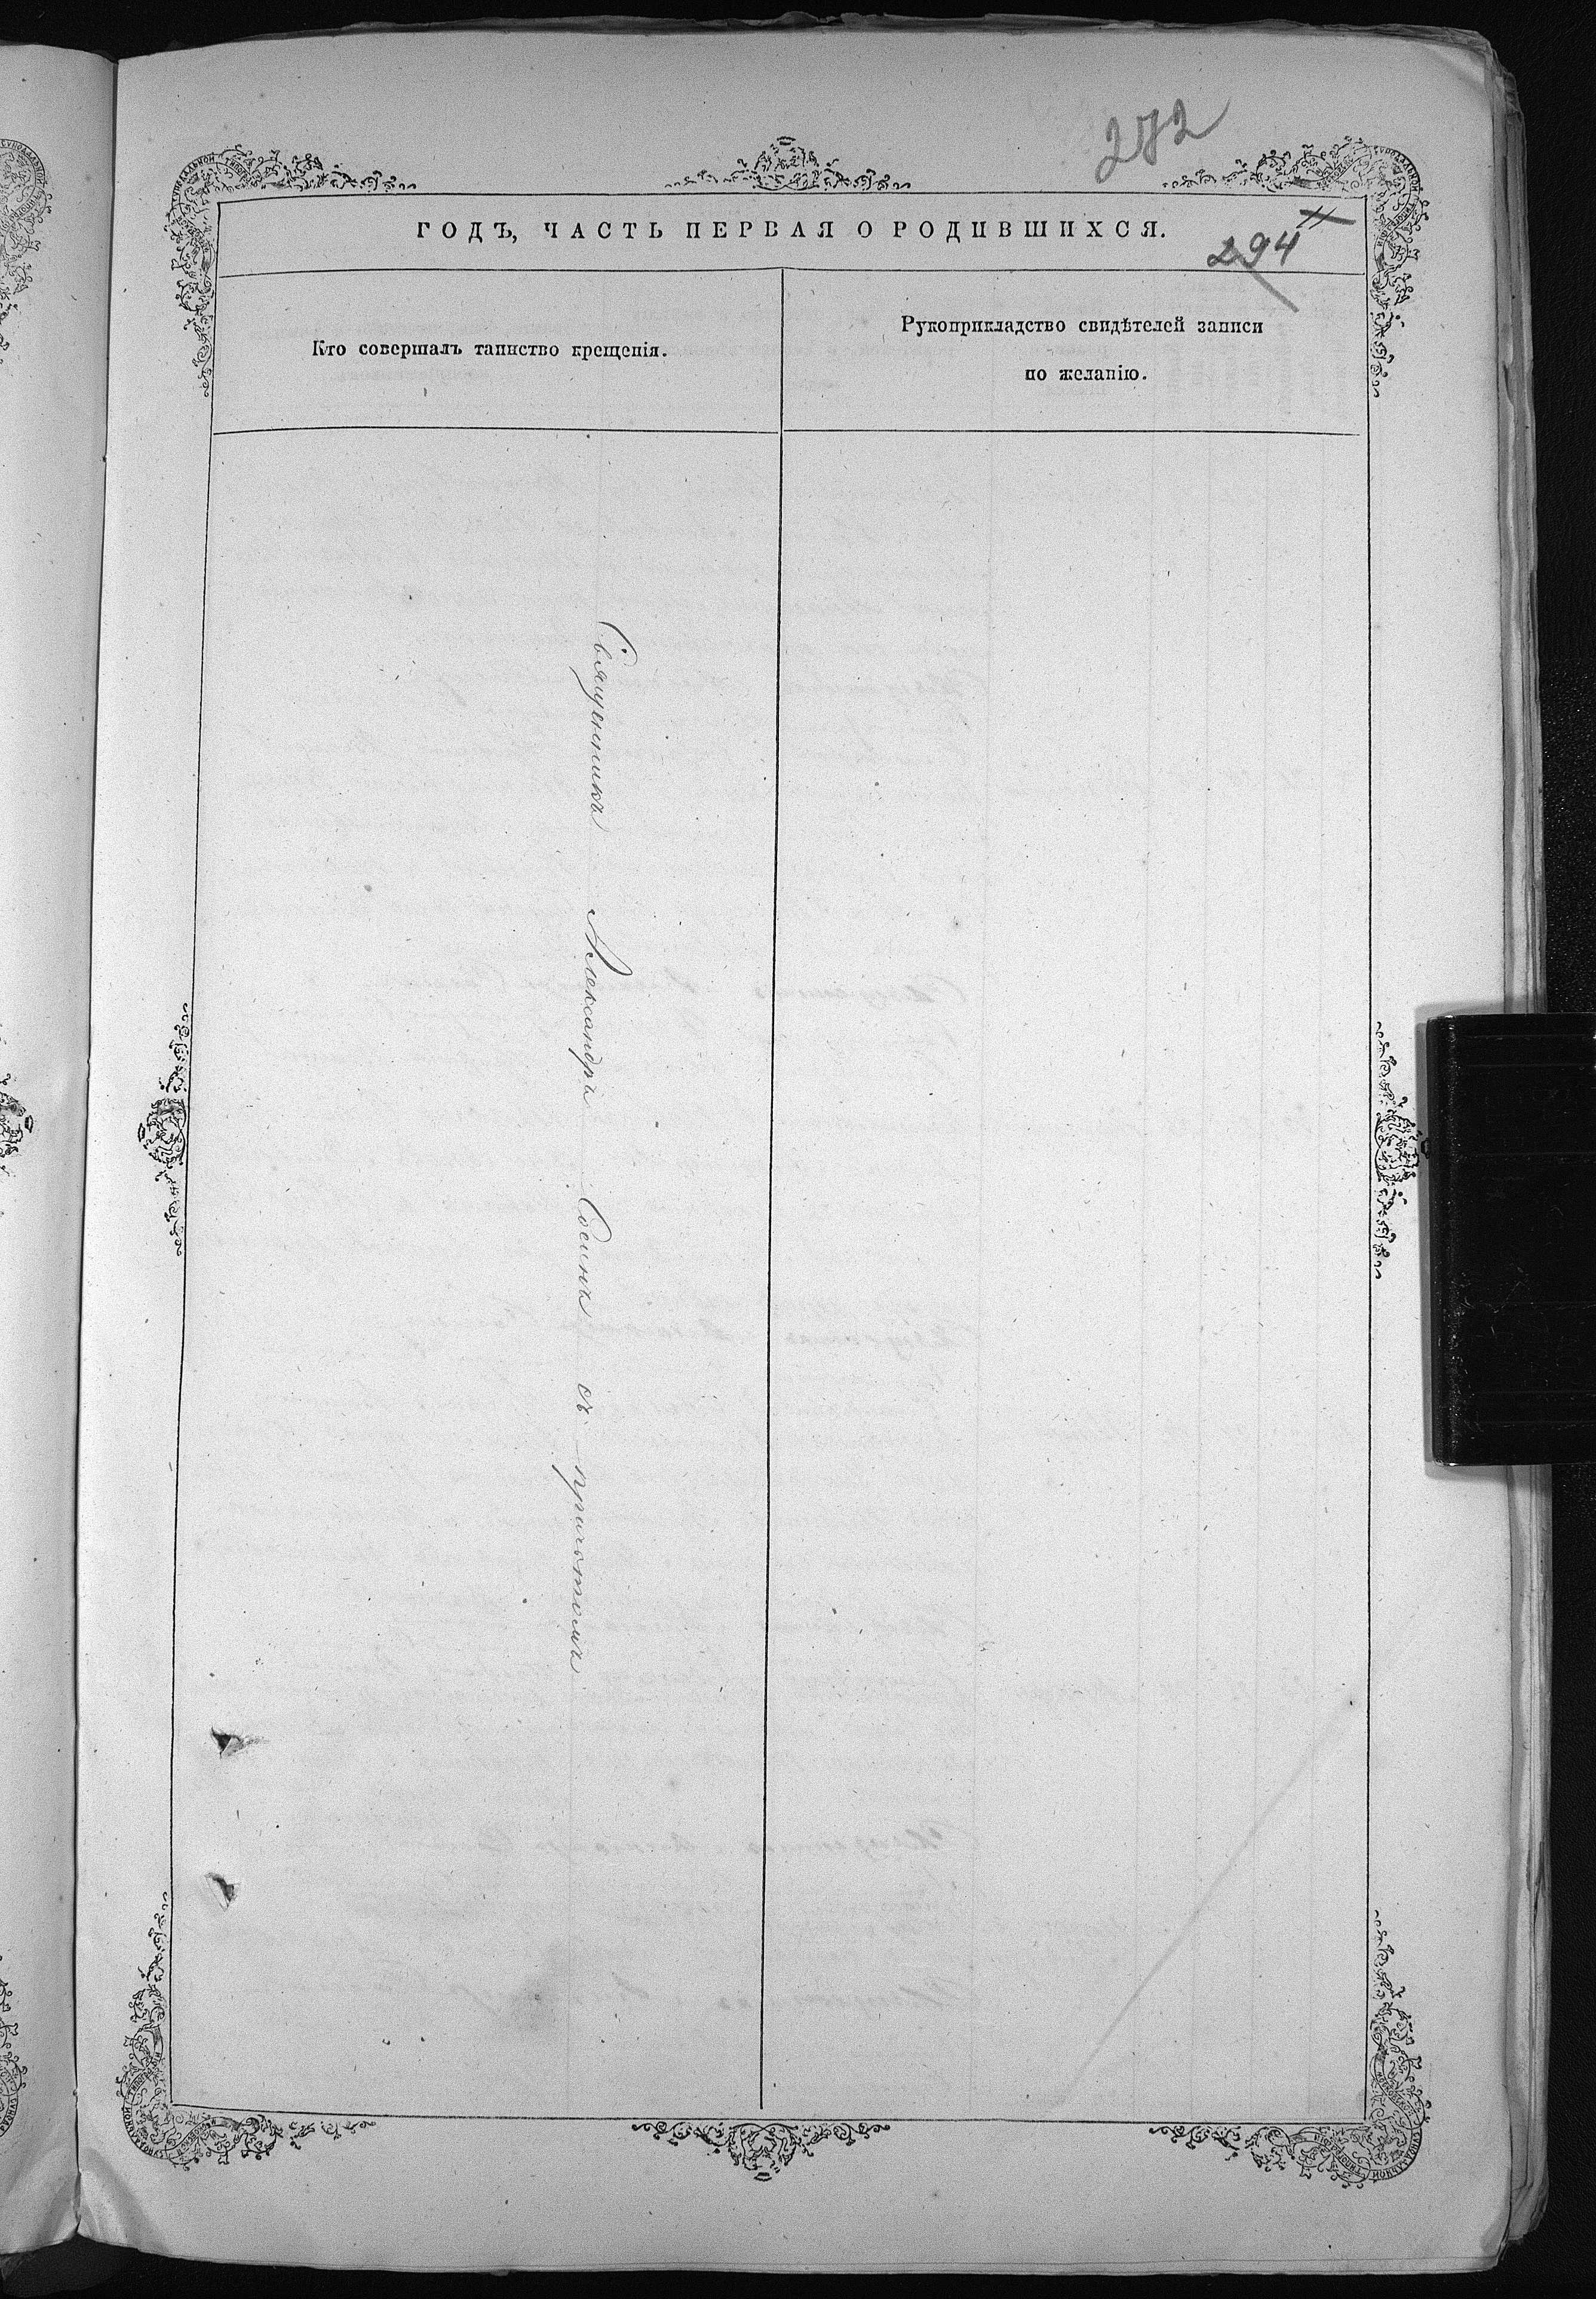 272
ГОДЪ, ЧАСТЬ ПЕРВАЯ О РОДИВШИХСЯ.
294
Кто совершалъ таинство крещенія.
Рукоприкладство свидѣтелей записи
по желанію.
Священникъ Александръ Сосинъ съ причтомъ